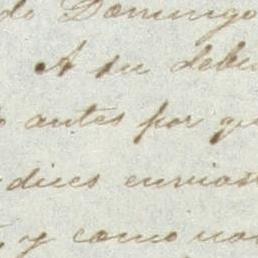 do Domingo
A su debi
antes por qu
dices envias
y como no